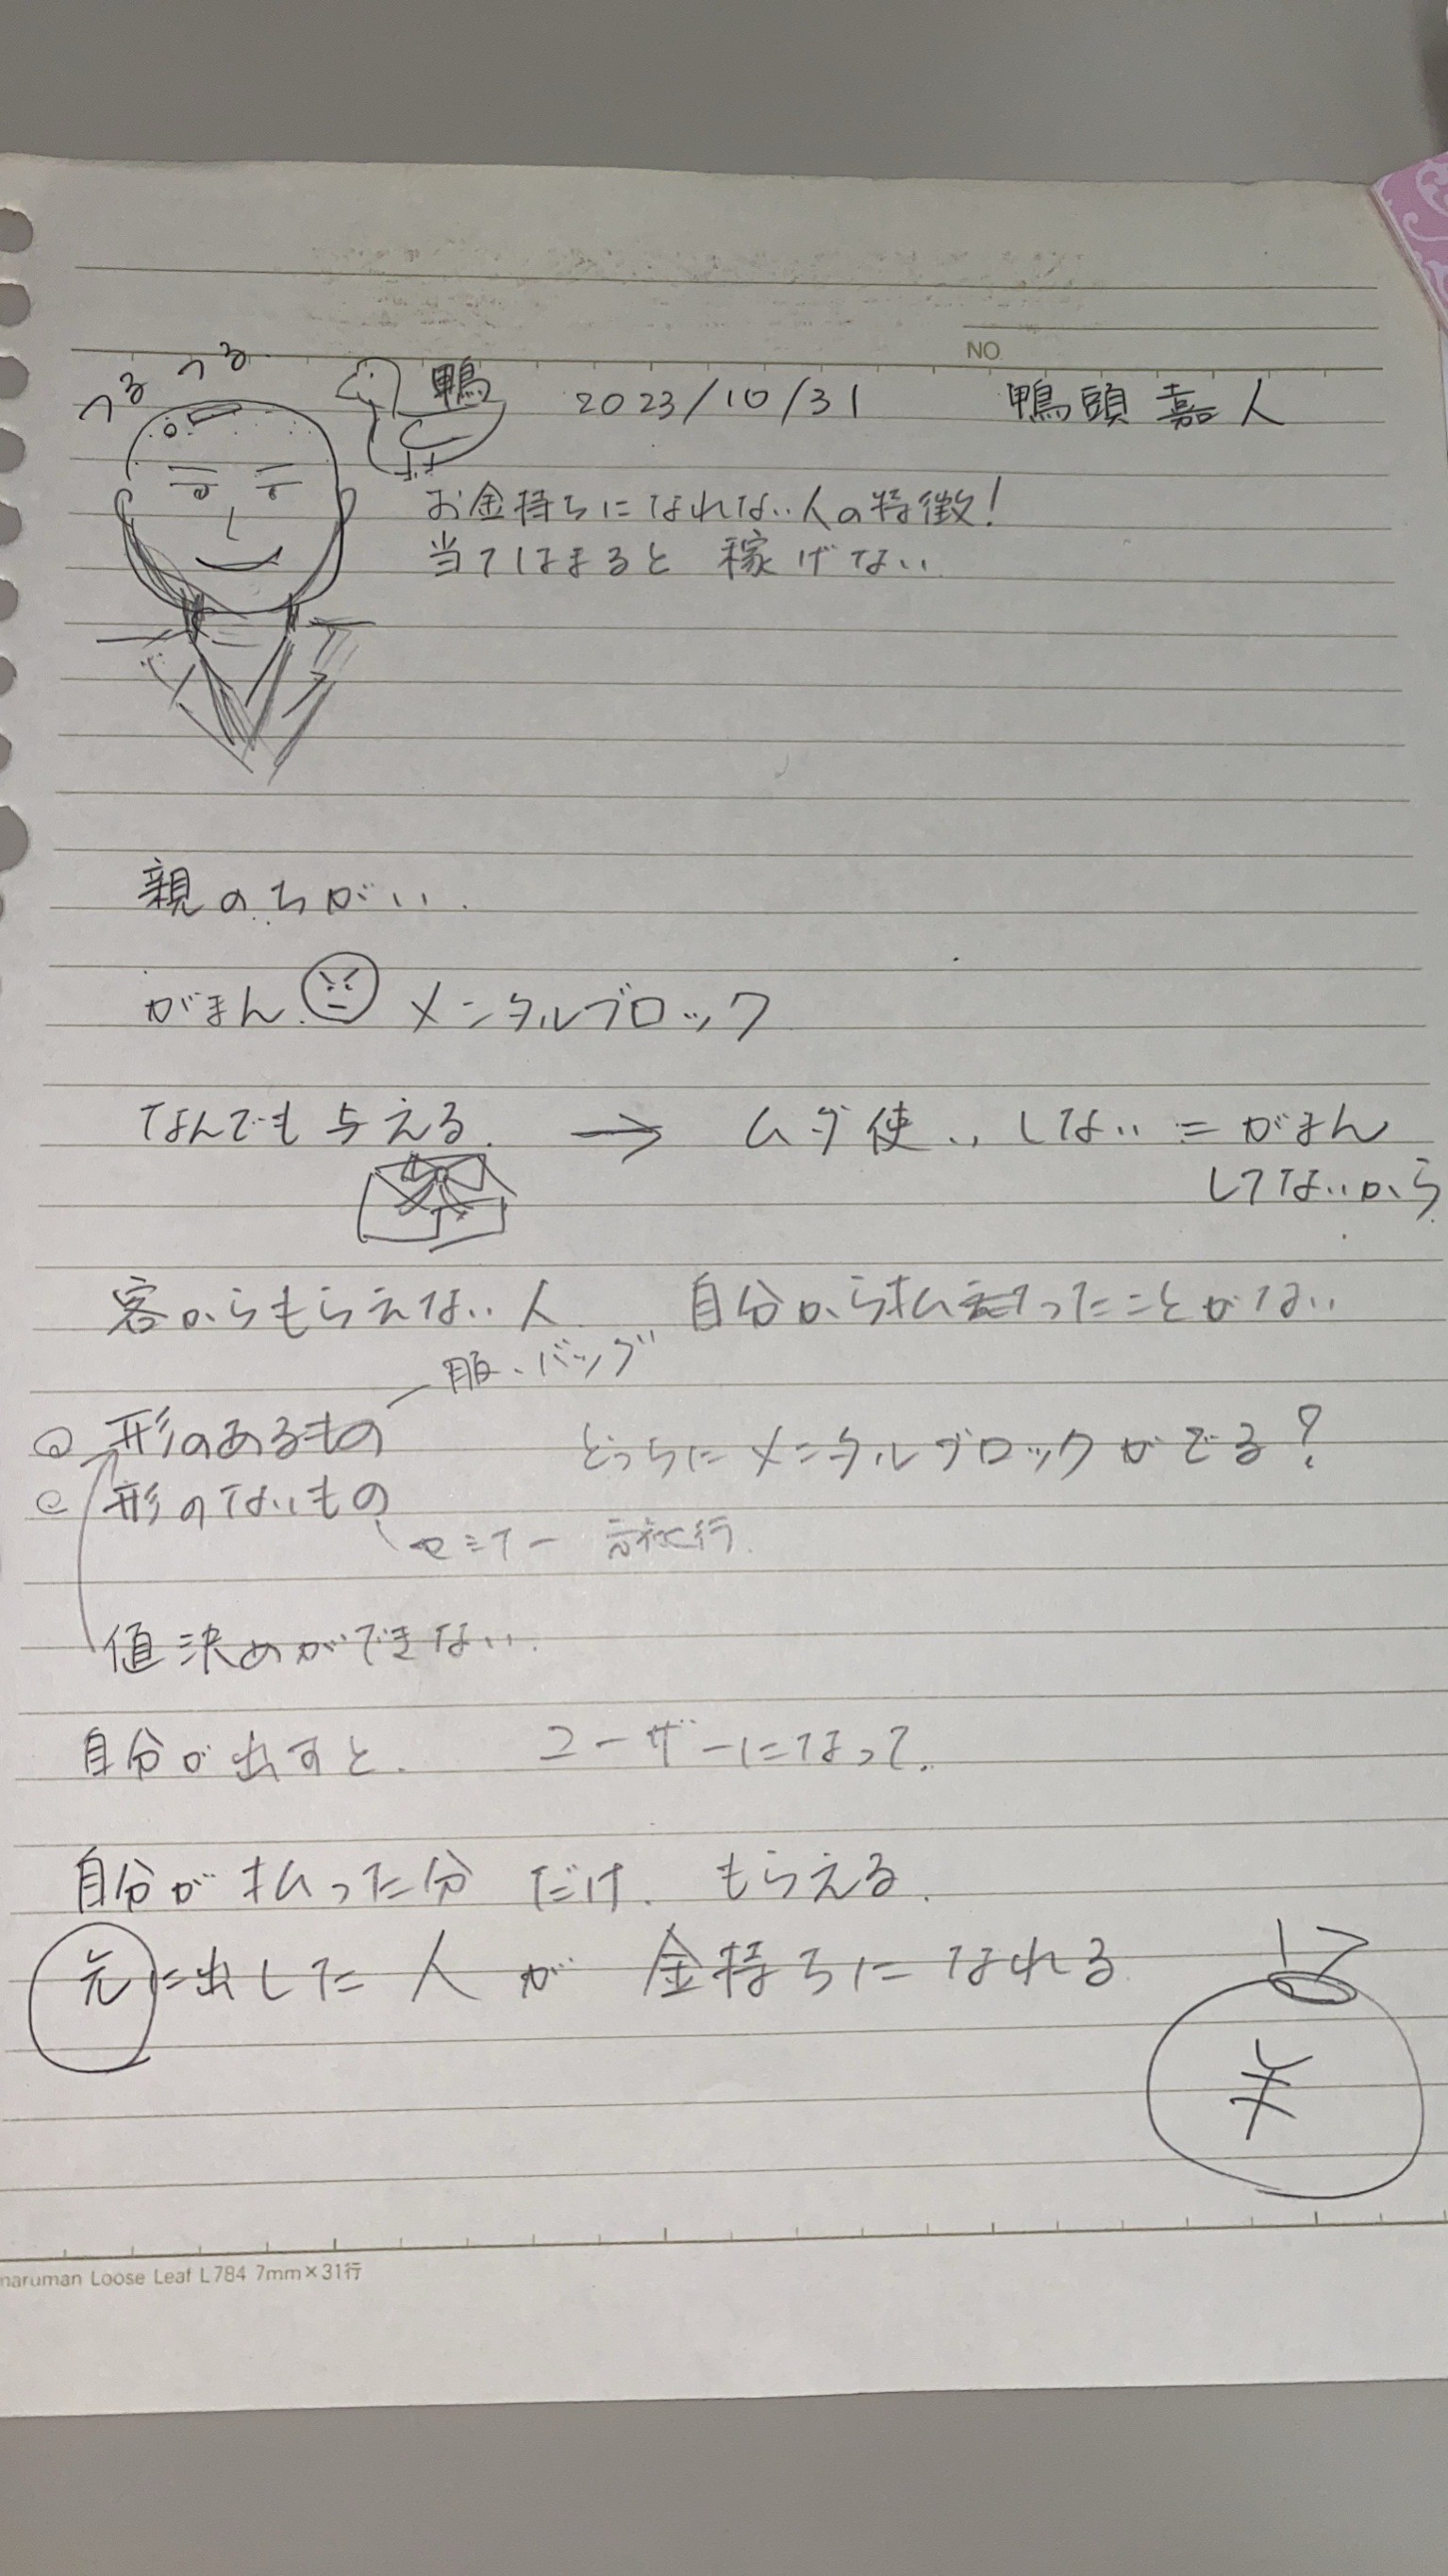 NO.
つるつる
鴨 2023/10/31 鴨頭嘉人
お金持ちになれない人の特徴!
当てはまると 稼げない
親のちがい.
がまん メンタルブロック
なんでも与える. → ムダ使いしない = がまん
してないから
客からもらえない人 自分から払ったことがない
服、バッグ
形のあるもの どっちにメンタルブロックがでる?
形のないもの
セミナー 旅行.
値決めができない.
自分が出すと. ユーザーになって.
自分が払った分だけ. もらえる.
元に出した人が 金持ちになれる
¥
maruman Loose Leaf L784 7mm×31行